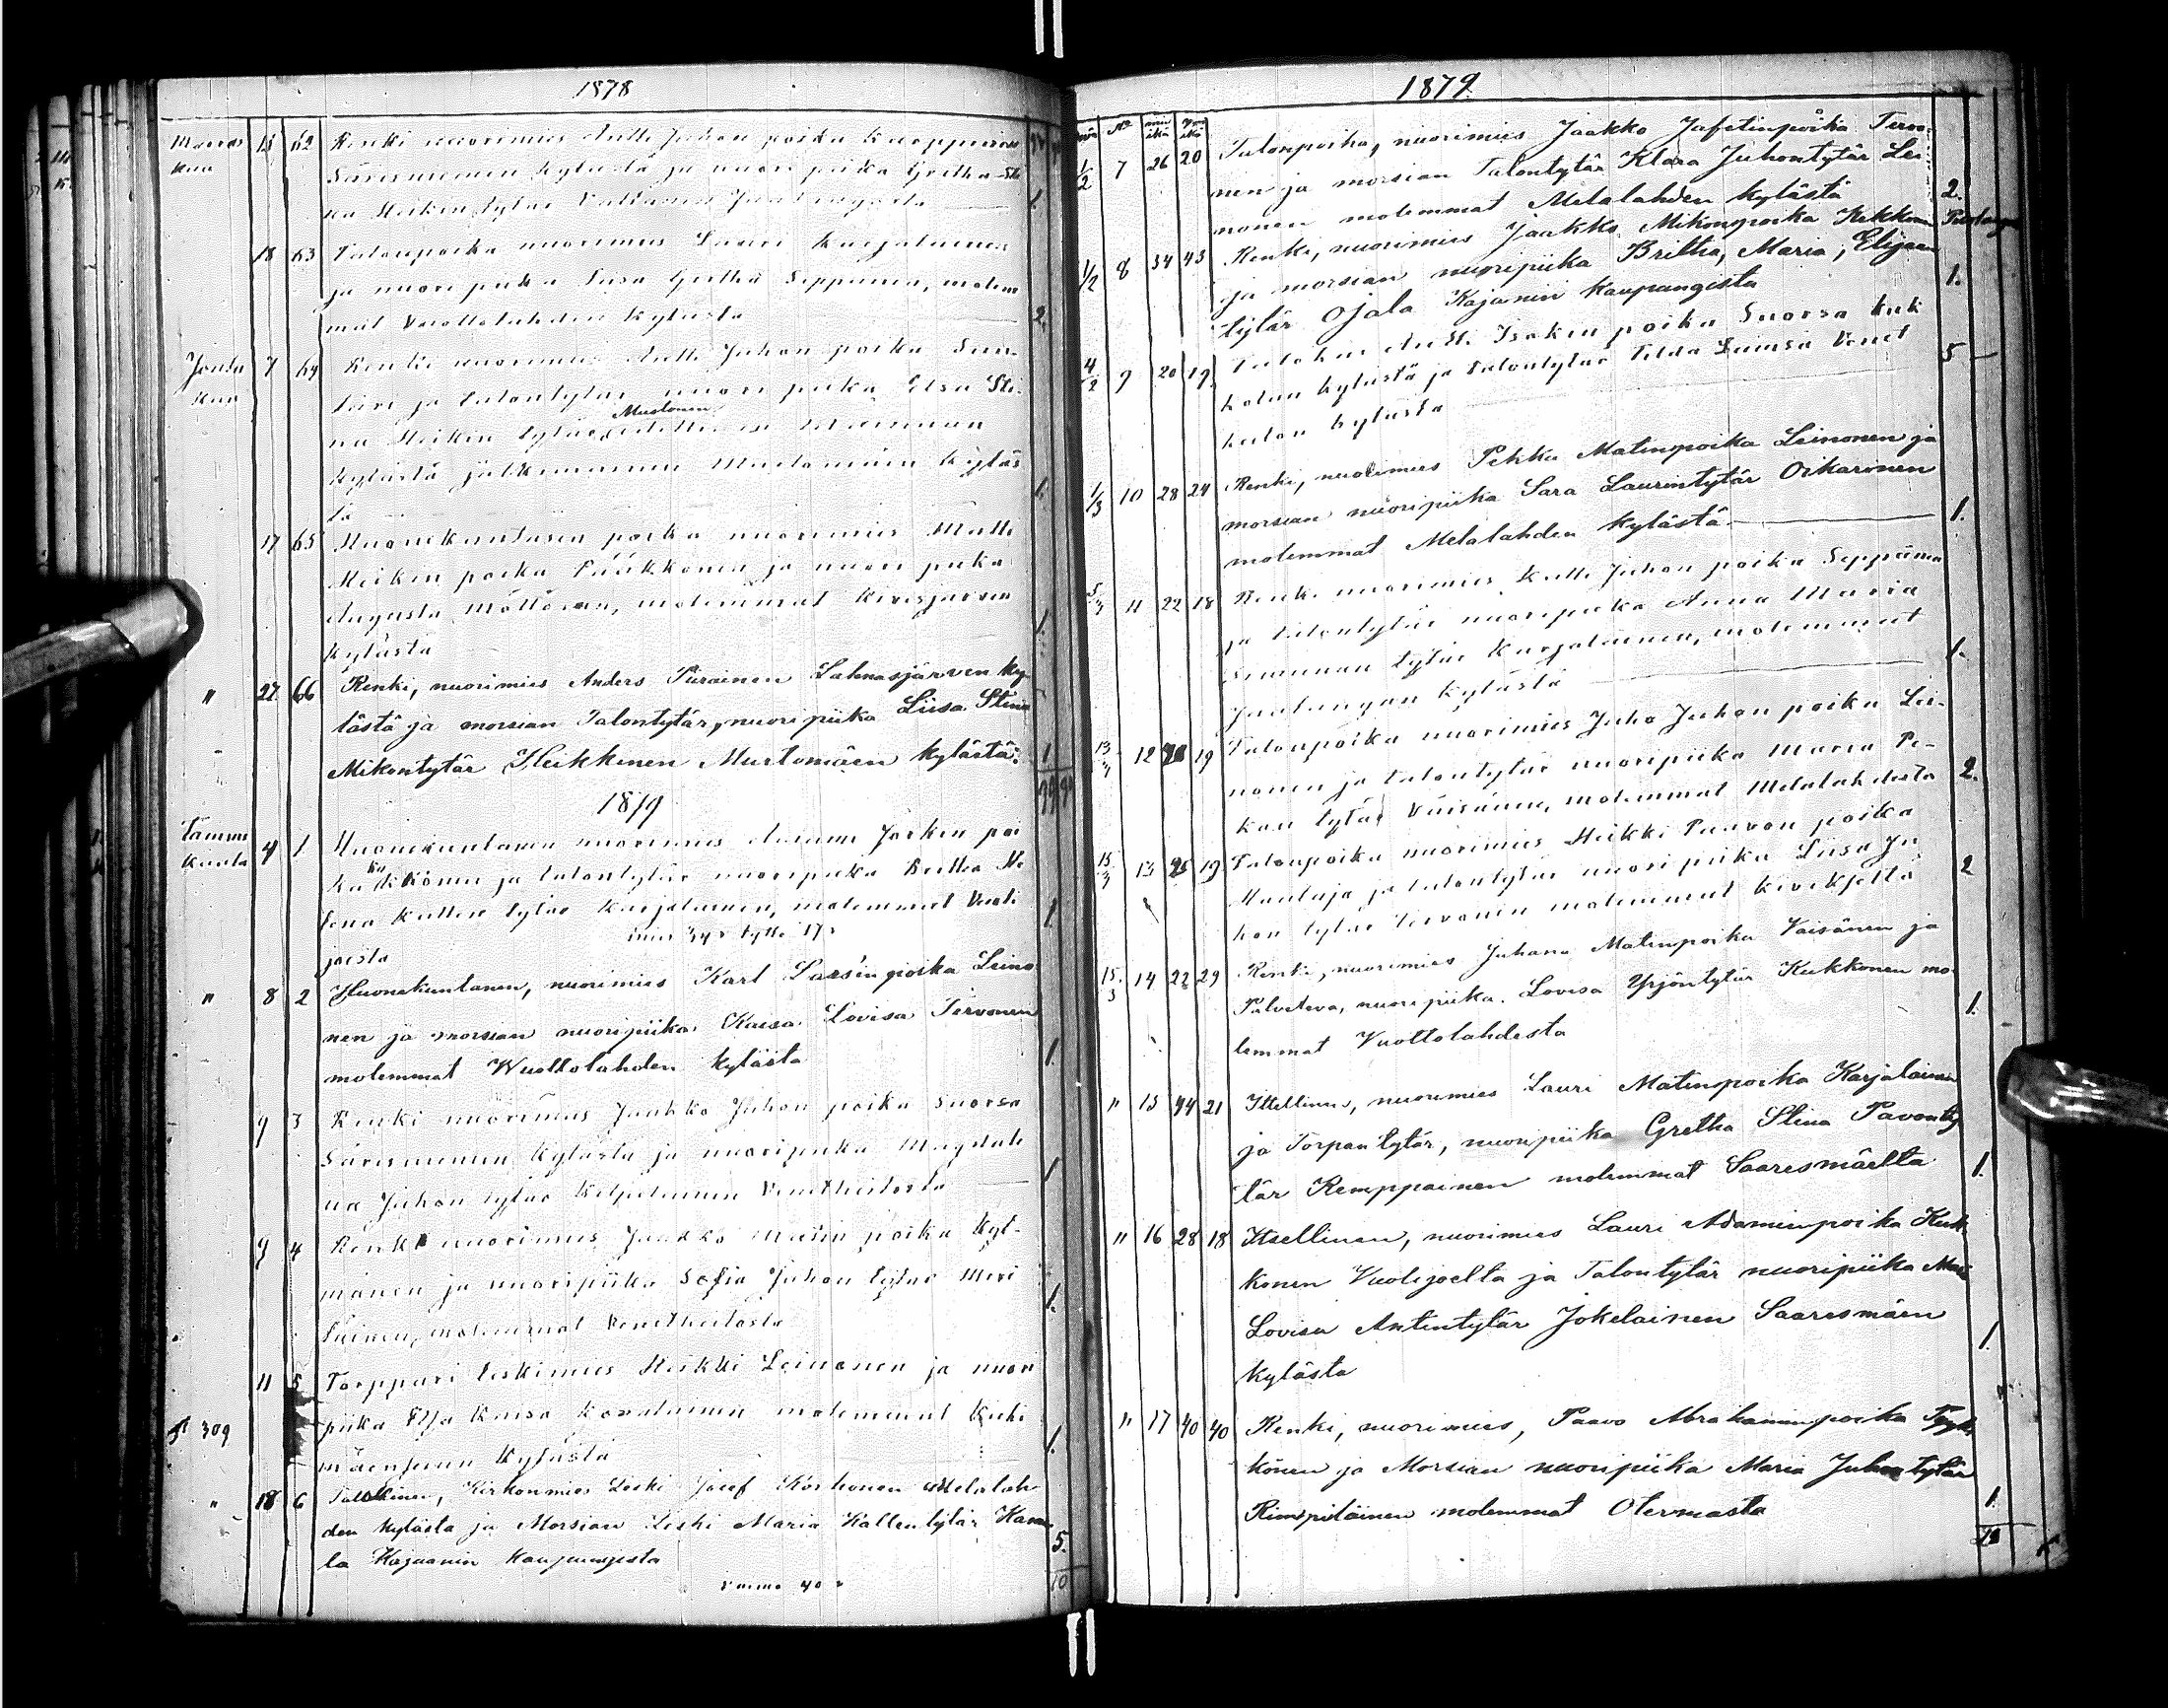 1878
Marras kuu 15 62 Renki nuorimies Antti Juhon poika Karppinen
Säresniemen kylästä ja nuori piika Gretha Sti
na Heikin tytär Jaalangasta 1.
18 63 Talonpoika nuorimies Lauri Karjalainen
ja nuori piika Liisa Gretha Seppänen, molem
mat Vuottolahden kylästä 2.
Joulu kuu 7 64 Renki nuorimies Antti Juhon poika
ja talontytär nuori piika Elsa Sti-
na Heikin tytär Mustonen
kylästä jälkimäinen Murtomäen kyläs
tä 1.
17 65 Huonekuntasen poika nuorimies Matti
Heikin poika Pääkkönen ja nuori piika
Augusta Möttönen, molemmat Kivesjärven
kylästä 1.
" 27 66 Renki, nuorimies Anders Piirainen Lahnasjärven ky
lästä ja morsian Talontytär, nuori piika Liisa Stina
Mikontytär Heikkinen Murtomäen kylästä. 1
1879
Tammi kuuta 4 1 Huonekuntanen nuorimies Aatami Jöskin poi
ka Kukkonen ja talontytär nuoripiika Brita He
lena Kallen tytär Karjalainen, molemmat Vuoli
joesta 1.
mies 34 v tyttö 17 v
" 8 2 Huonekuntanen, nuorimies Karl Larsinpoika Leino
nen ja morsian nuoripiika Kaisa Lovisa Tervonen
molemmat Wuottolahden kylästä 1.
9 3 Renki nuorimies Jaakko Juhon poika Suorsa
Säresniemen kylästä ja nuoripiika Magdale
na Juhon tytär Keltalainen Venetheitosta 1
9 4 Renki nuorimies Jaakko Matin poika Kyl-
mänen ja nuoripiika Sofia Juhon tytär Meri
läinen, molemmat Venetheitosta 1.
11 5 Torppari leskimies Heikki Leinonen ja nuori
piika Elsa Kaisa Kovalainen molemmat Kuhi
mäenperän kylästä 1.
309
" 18 6 Talollinen, Kirkonmies Leski Josef Korhonen Melalah
den kylästä ja Morsian Leski Maria Kallentytär
la Kajaanin kaupungista 5.
vaimo 40 v
10
1879
7 26 20 Talonpoika, nuorimies Jaakko Jafetinpoika Tervo-
1/2 nen ja morsian Talontytär Klara Juhontytär Lei-
nonen molemmat Melalahden kylästä 2.
1/2 8 34 43 Renki, nuorimies Jaakko Mikonpoika Kekkonen
ja morsian nuoripiika Britha, Maria, Elijaen
tytär Ojala Kajanin kaupungista 1.
4/2 9 20 19 Talokas Antti Isakin poika Suorsa Kuk
kolan kylästä ja talontytär Tilda Leinosa Venet
heiton kylästä 5
1/3 10 28 24 Renki, nuorimies Pekka Matinpoika Leinonen ja
morsian nuoripiika Sara Laurintytär Oikarinen
molemmat Melalahden kylästä 1.
5/3 11 22 18 Renki nuorimies Kalle Juhon poika Seppänen
ja talontytär nuoripiika Anna Maria
Simunan tytär Karjalainen, molemmat
Jaalangan kylästä 1.
13/3 12 19 Talonpoika nuorimies Juho Juhon poika Lei-
nonen ja talontytär nuoripiika Maria Pe-
kan tytär Väisänen, molemmat Melalahdesta 2.
15/3 13 25 19 Talonpoika nuorimies Heikki Paavon poika
Mantaja ja talontytär nuori piika Liisa Ju
hon tytär Tervonen molemmat Kivekseltä 2
15/3 14 22 29 Renki, nuorimies Juhana Matinpoika Vaisänen ja
Palveleva, nuori piika. Lovisa Yrjöntytär Kukkonen mo-
lemmat Vuottolahdesta 1.
" 15 44 21 Itsellinen, nuorimies Lauri Matinpoika Karjalainen
ja Torpantytär, nuoripiika Gretha Stina Pavonty
tär Kemppainen molemmat Saaresmäelta 1.
" 16 28 18 Itsellinen, nuorimies Lauri Adaminpoika Kuk
konen Vuolijoelta ja Talontytär nuoripiika Maria
Lovisa Antintytär Jokelainen Saaresmäen 1.
kylästa
" 17 40 40 Renki, nuorimies, Paavo Abrahaminpoika
könen ja Morsian nuoripiika Maria Juhontytär
Rimpiläinen molemmat Otermasta 1.